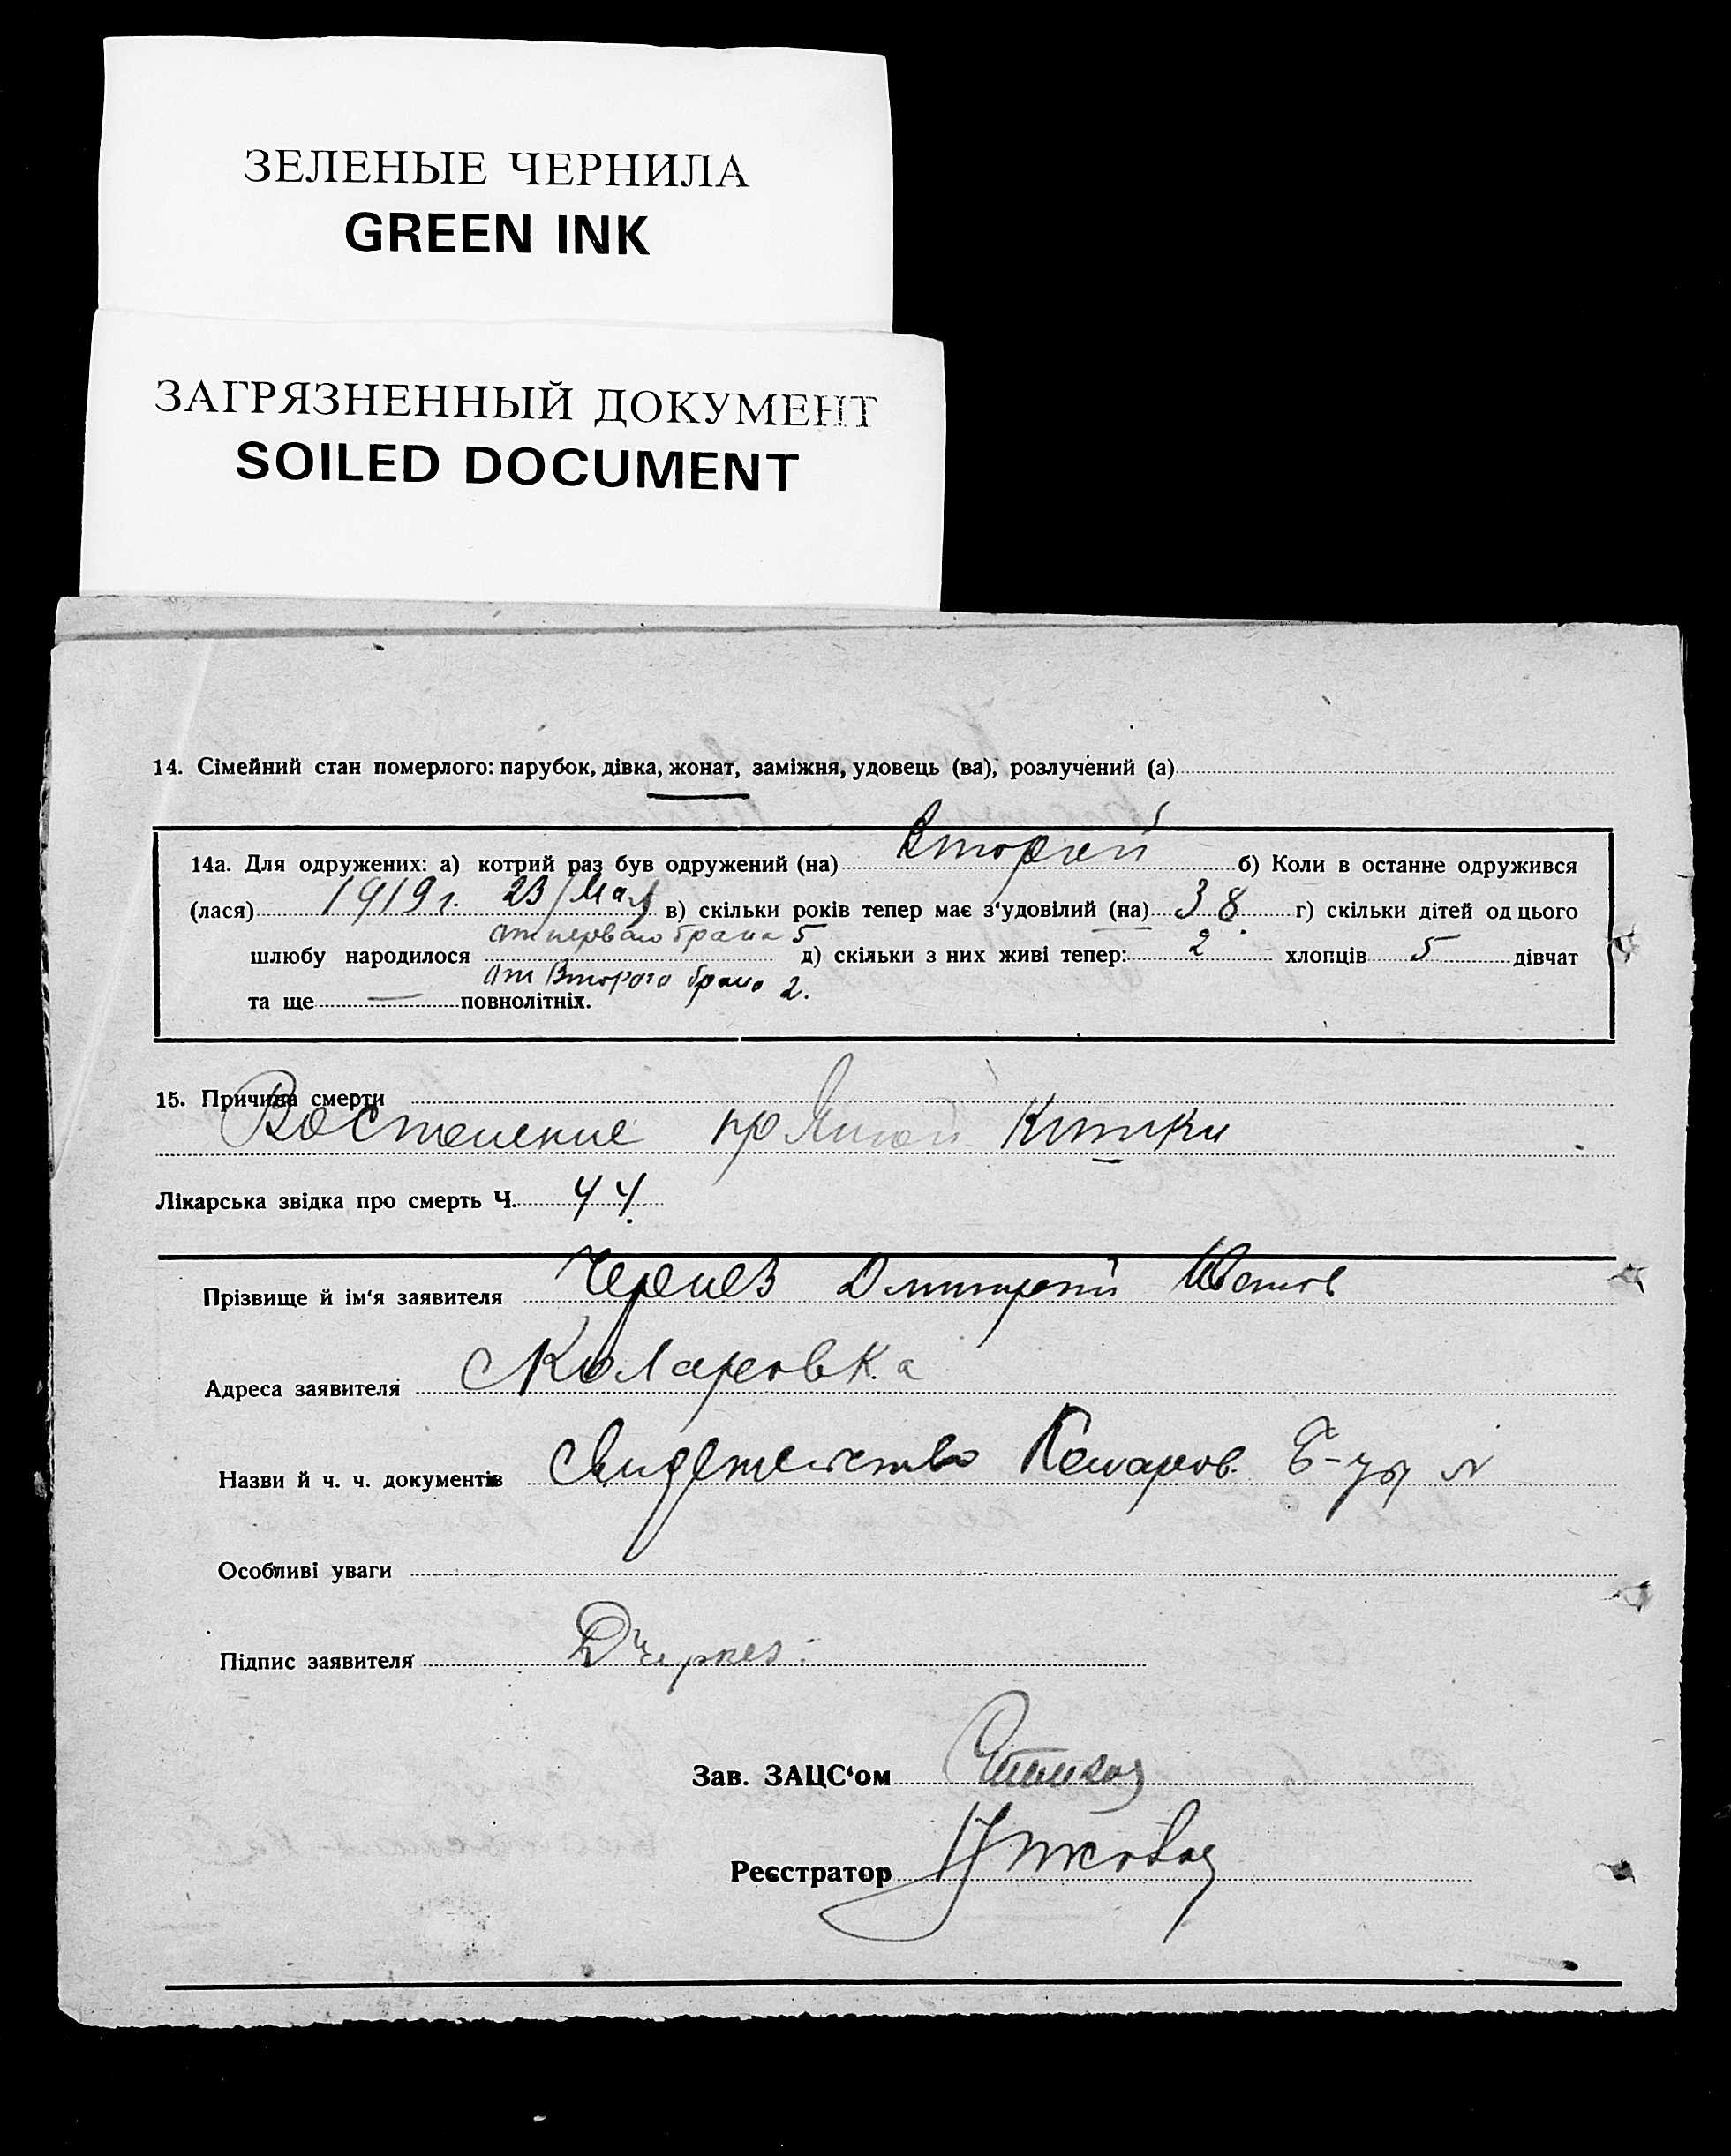 ЗЕЛЕНЫЕ ЧЕРНИЛА
GREEN INK
ЗАГРЯЗНЕННЫЙ ДОКУМЕНТ
SOILED DOCUMENT
14. Сімейний стан померлого: парубок, дівка, жонат, заміжня, удовець (ва), розлучений (а)
14а. Для одружених: а) котрий раз був одружений (на) Второй б) Коли в останне одружився
(лася) 1919 г. 23/Мая в) скільки років тепер має з'удовілий (на) 38 г) скільки дітей од цього
от первого брака 5
шлюбу народилося д) скільки з них живі тепер: 2 хлопців 5 дівчат
от Второго брака 2.
та ще — повнолітніх.
15. Причина смерти
Восполение прямой Кишки
Лікарська звідка про смерть Ч. 44.
Прізвище й ім'я заявителя Дмитрий
Адреса заявителя с Коларовка
Назви й ч. ч. документів Свидетельство Комаров. Б-цы №
Особливі уваги
Підпис заявителя
Зав. ЗАЦС'ом
Реєстратор